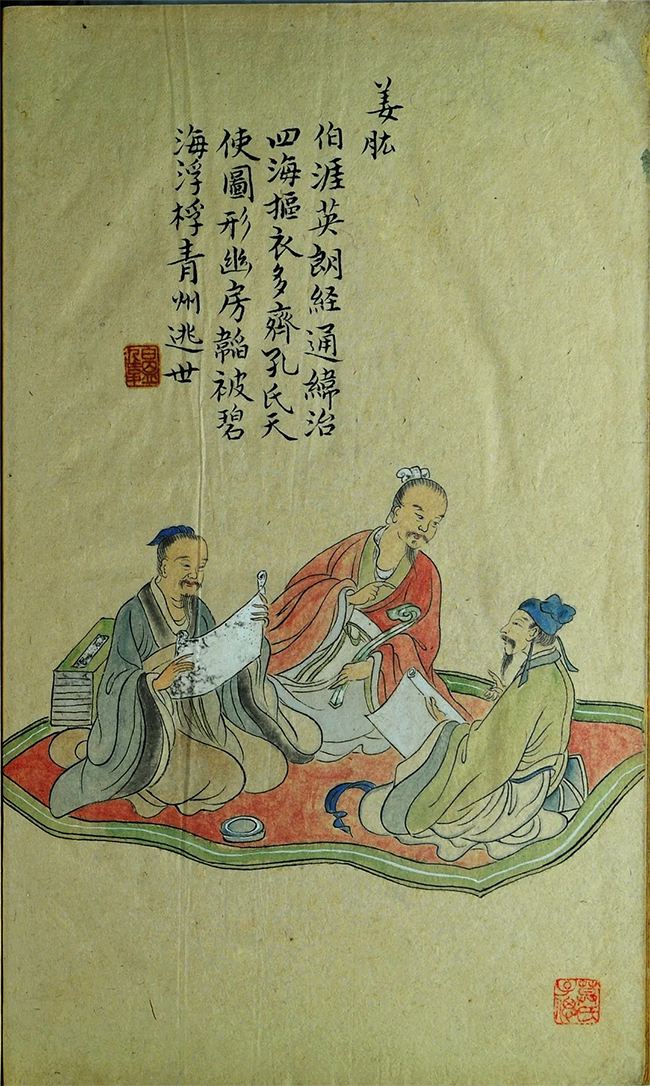 姜肱
伯涯英朗経通緯治
四海摳衣多齊孔氏天
使圖形幽房韜被碧
海浮桴青州逃世